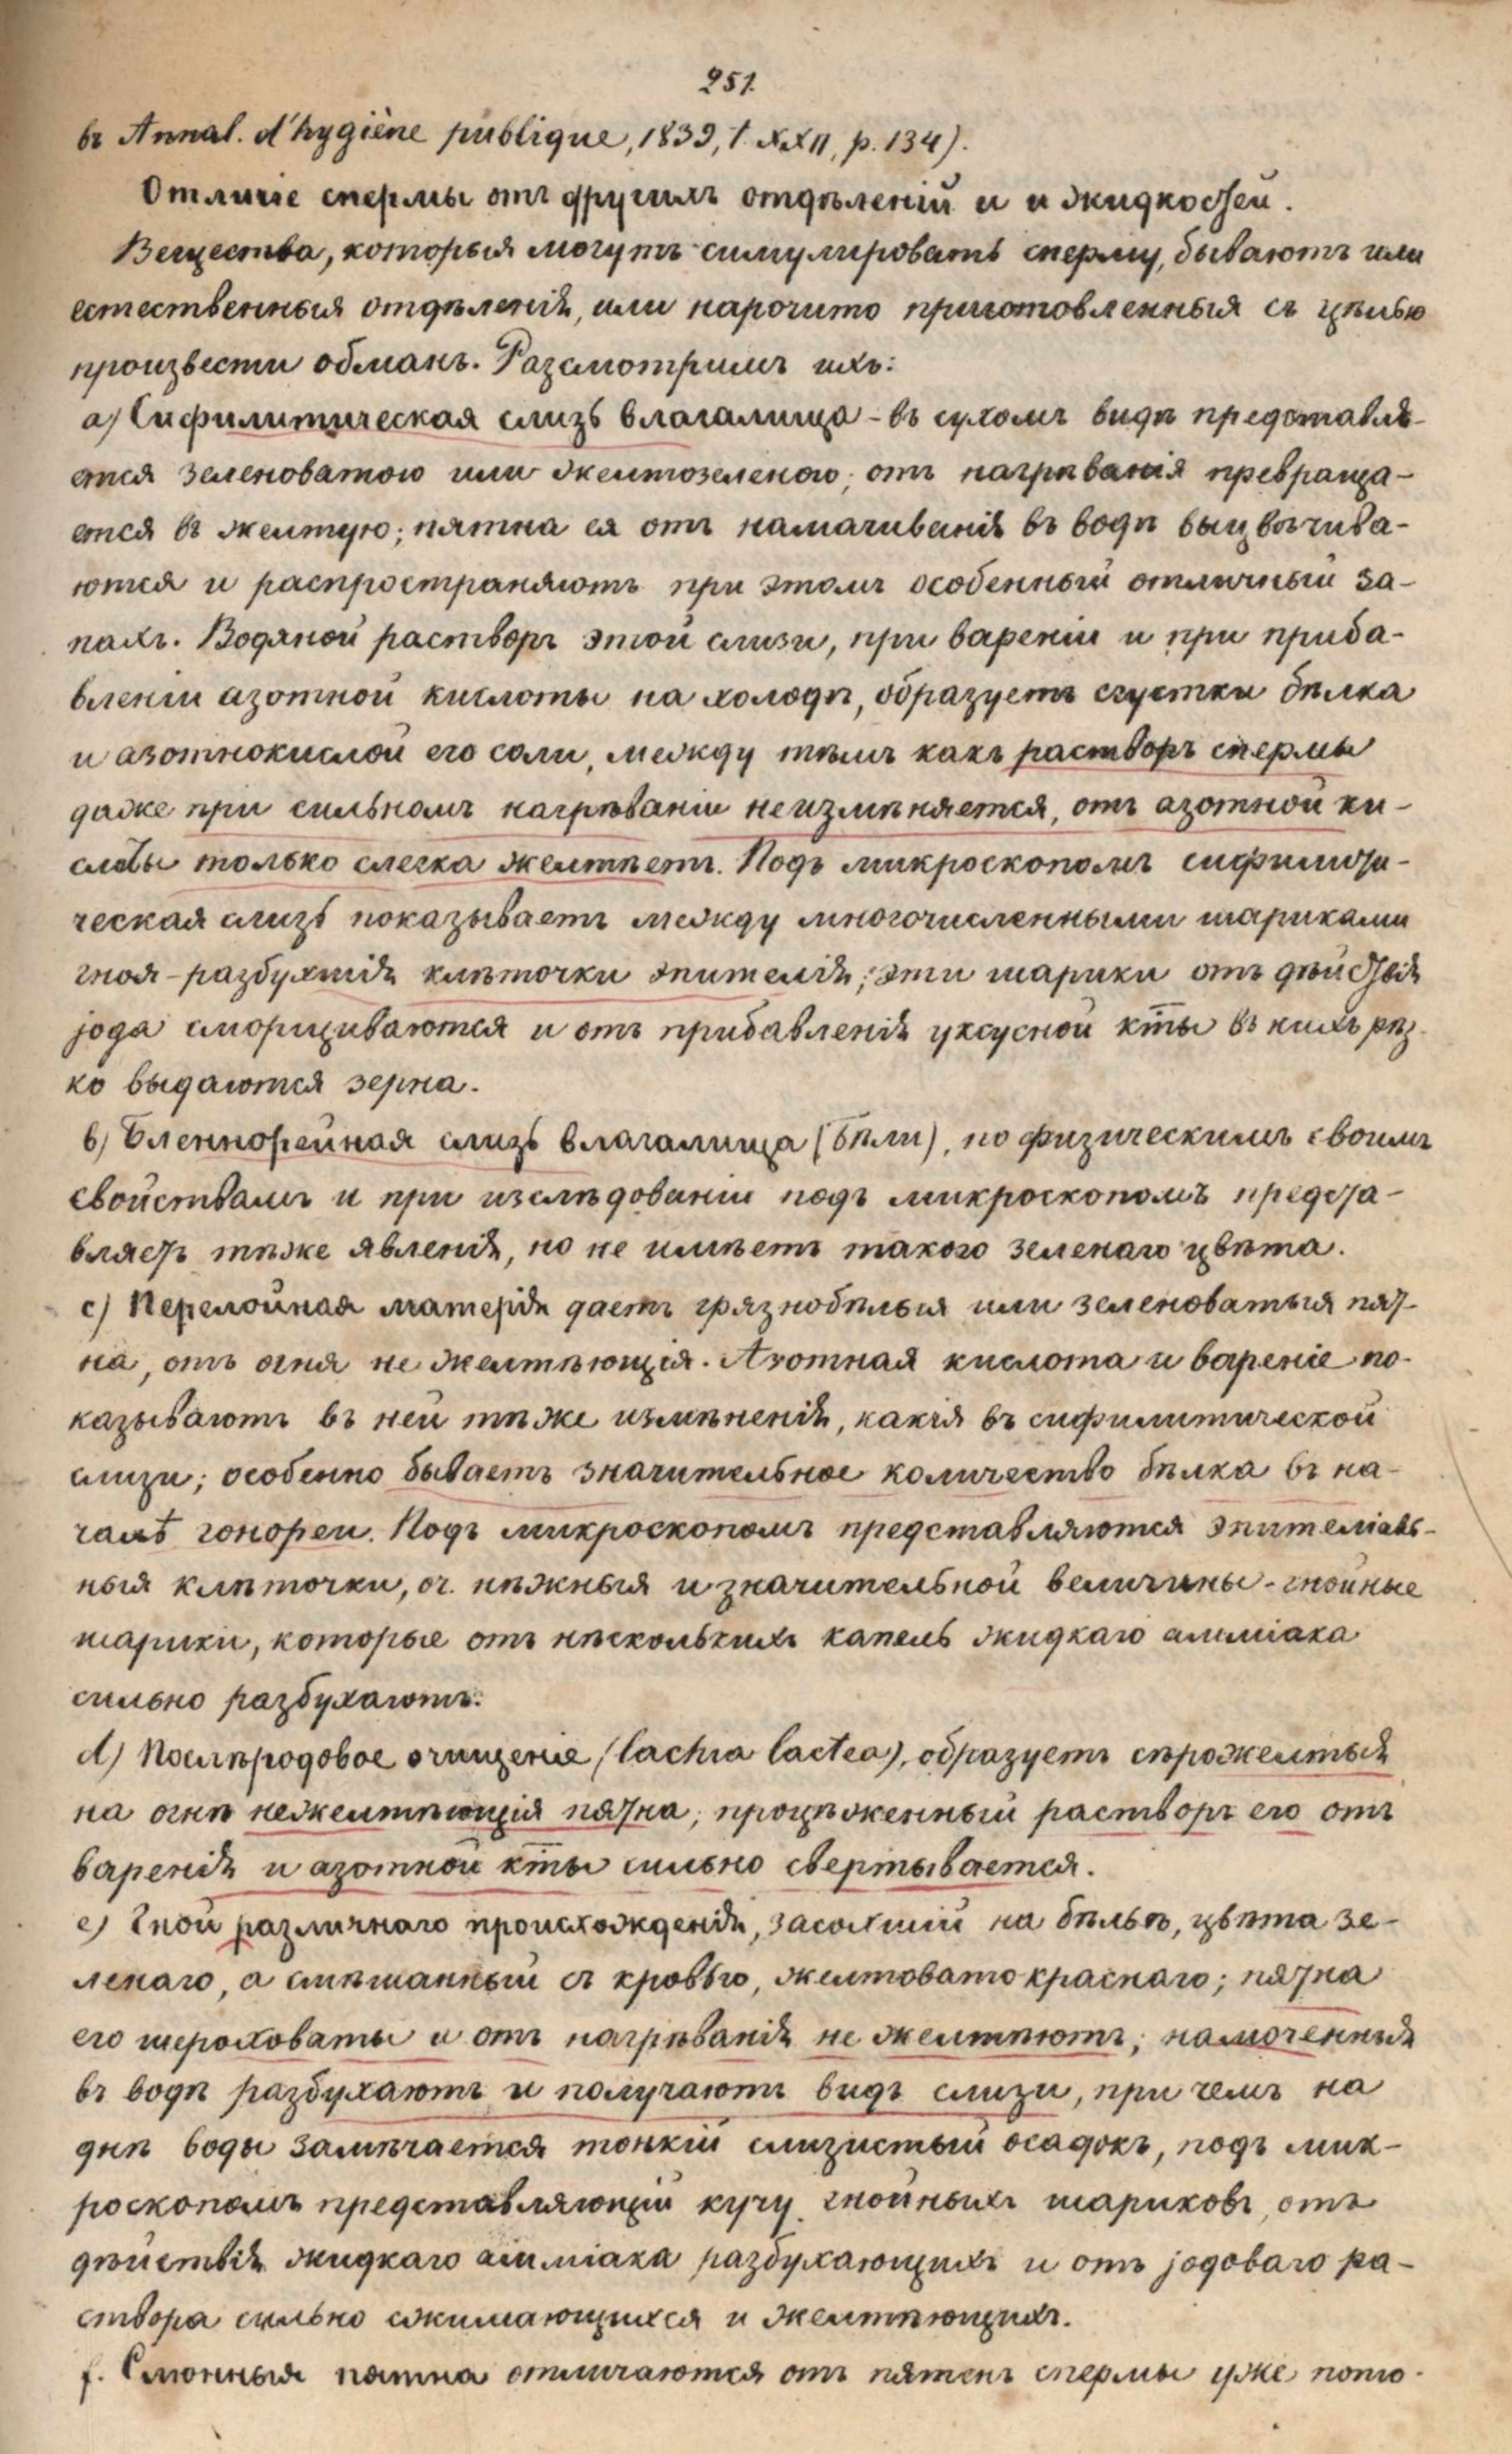 251.
въ Annal. d'hygiène publique, 1839, t. XXII, p. 134).
Отличіе спермы отъ другихъ отдѣленій и и жидкостей.
Вещества, которыя могутъ симулировать сперму, бываютъ или
естественныя отдѣленія, или нарочито приготовленныя съ цѣлью
произвести обманъ. Разсмотримъ ихъ:
a) Сифилитическая слизь влагалища - въ сухомъ видѣ представля-
ется зеленоватою или желтозеленою; отъ нагрѣванія превраща-
ется въ желтую; пятна ея отъ намачиванія въ водѣ выцвѣчива-
ются и распространяютъ при этомъ особенный отличный за-
пахъ. Водяной растворъ этой слизи, при вареніи и при приба-
вленіи азотной кислоты на холодѣ, образуетъ сгустки бѣлка
и азотнокислой его соли, между тѣмъ какъ растворъ спермы
даже при сильномъ нагрѣваніи неизмѣняется, отъ азотной ки-
слоты только слегка желтѣетъ. Подъ микроскопомъ сифилити-
ческая слизь показываетъ между многочисленными шариками
гноя - разбухшія клѣточки эпителія; эти шарики отъ дѣйствія
јода сморщиваются и отъ прибавленія уксусной кты въ нихъ рѣз-
ко выдаются зерна.
b) Бленнорейная слизь влагалища (бѣли), по физическимъ своимъ
свойствамъ и при изслѣдованіи подъ микроскопомъ предста-
вляетъ тѣже явленія, но не имѣетъ такого зеленаго цвѣта.
c) Перелойная матерія даетъ грязнобѣлыя или зеленоватыя пят-
на, отъ огня не желтѣющія. Азотная кислота и вареніе по-
казываютъ въ ней тѣже измѣненія, какія въ сифилитической
слизи; особенно бываетъ значительное количество бѣлка въ на-
чалѣ гонореи. Подъ микроскопомъ представляются эпителіаль-
ныя клѣточки, оч. нѣжныя и значительной величины - гнойные
шарики, которые отъ нѣсколькихъ капель жидкаго амміака
сильно разбухаютъ.
d) Послѣродовое очищеніе (lochia lactea), образуетъ сѣрожелтыя
на огнѣ нежелтѣющія пятна; процѣженный растворъ его отъ
варенія и азотной кты сильно свертывается.
e) Гной различнаго происхожденія, засохшій на бѣльѣ, цвѣта зе-
ленаго, а смѣшанный съ кровью, желтоватокраснаго; пятна
его шероховаты и отъ нагрѣванія не желтѣютъ; намоченныя
въ водѣ разбухаютъ и получаютъ видъ слизи, при чемъ на
днѣ воды замѣчается тонкій слизистый осадокъ, подъ мик-
роскопомъ представляющій кучу гнойныхъ шариковъ, отъ
дѣйствія жидкаго амміака разбухающихъ и отъ јодоваго ра-
створа сильно сжимающихся и желтѣющихъ.
f. Слюнныя пятна отличаются отъ пятенъ спермы уже пото-